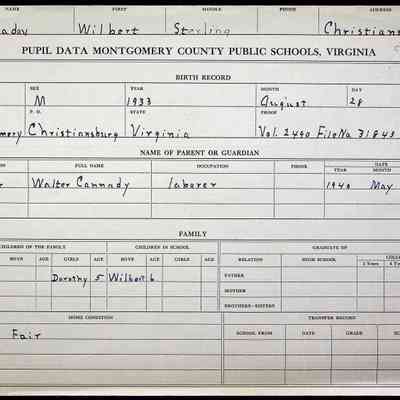 NAME FIRST MIDDLE PHONE ADDRESS
aday Wilbert Sterling Christians
PUPIL DATA MONTGOMERY COUNTY PUBLIC SCHOOLS, VIRGINIA
BIRTH RECORD
SEX YEAR MONTH DAY
M 1933 August 28
P. O. STATE PROOF
mery Christiansburg Virginia Vol. 2490 File No. 31843
NAME OF PARENT OR GUARDIAN
FULL NAME OCCUPATION PHONE DATE
YEAR MONTH
r Walter Cannady laborer 1940 May
FAMILY
CHILDREN OF THE FAMILY CHILDREN IN SCHOOL GRADUATE OF
BOYS AGE GIRLS AGE BOYS AGE GIRLS AGE RELATION HIGH SCHOOL
2 Years
FATHER
Dorothy 5 Wilbert 6
MOTHER
BROTHERS—SISTERS
HOME CONDITION TRANSFER RECORD
SCHOOL FROM DATE GRADE
Fair